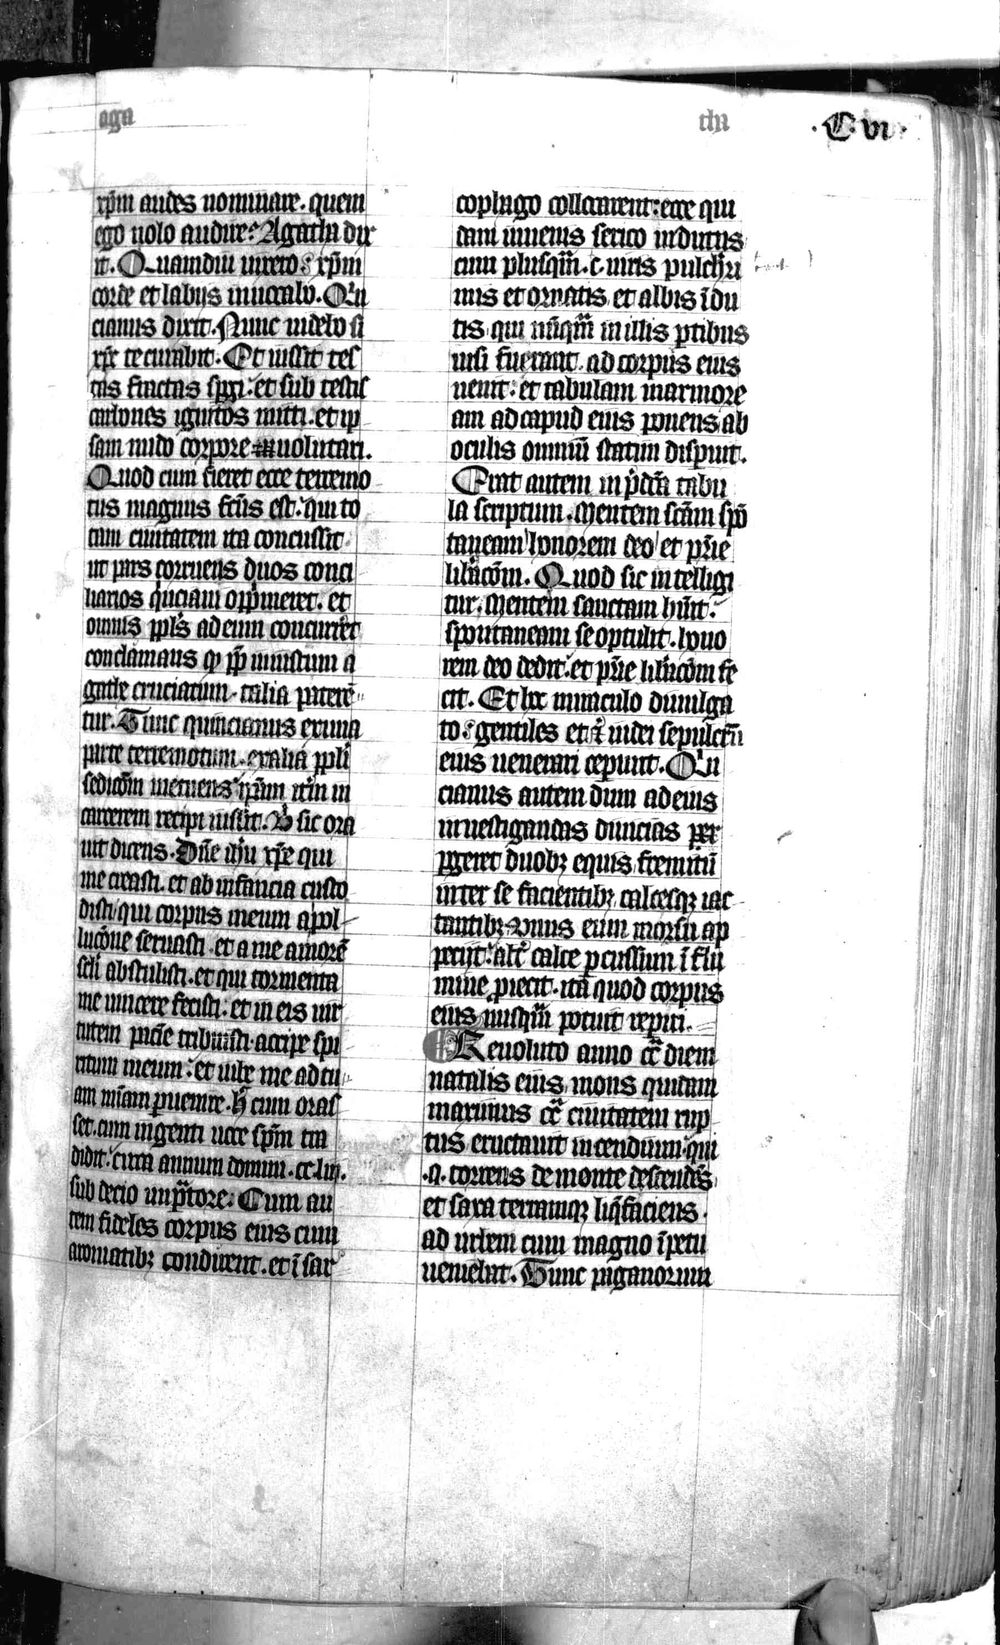 aga
thа
·C·vi·
xp̄m audes nominare. quem
ego nolo audire? Agatha dix
it. Quamdiu vixero: xp̄m
corde et labijs inuocabo. Qui
cianus dixit. Nunc videbo si
xp̄c te curabit. Et iussit tes
tas fractas spgi: et sub testis
carbones ignitos mitti. et ip
sam nudo corpore uolutari.
Quod cum fieret ecce terremo
tus magnus fc̄us est: qui to
tam ciuitatem ita concussit
ut pars corruens duos consi
liarios quiciani opp̄meret. et
omnis ppl̄s ad eum concurrēt
conclamans q̄ ppt̄ iniustum a
gathe cruciatum. talia paterē
tur. Tunc quincianus ex una
parte terremotum. ex alia ppl̄i
sedicōm metuens ip̄am itūm in
carcerem recipi iussit. V̄ sic ora
uit dicens. Dn̄e ih̄u xp̄e qui
me creasti. et ab infancia custo
disti qui corpus meum a pol
lucōne seruasti. et a me amorē
sc̄li abstulisti. et qui tormenta
me uincere fecisti: et in eis uir
tutem pacīe tribuisti. accipe spi
ritum meum: et iube me ad tu
am mīam puenire. h̄ cum oras
set. cum ingenti uoce sp̄m tra
didit. circa annum domini. cc. liij.
sub decio imp̄atore. Cum au
tem fideles corpus eius cum
aromatibꝫ condirent. et ī sar
cophago collocarent: ecce qui
dam iuuenis serico indutus
cum plusqm̄. c. uiris pulch̓ri
mis et ornatis et albis īdu
tis. qui nūqm̄ in illis ptibus
uisi fuerant. ad corpus eius
uenit: et tabulam marmore
am ad capud eius ponens ab
oculis omniū statim disparuit.
Erat autem in p̄dc̄a tabu
la scriptum. Mentem sc̄am spō
taneam honorem deo et pr̄ie
lib̓acōm. Quod sic intelligi
tur. Mentem sanctam hūit.
spontaneam se optulit. hono
rem deo dedit. et pr̄ie lib̓acōm fe
cit. Et hoc miraculo diuulga
to: gentiles et iudei sepulcrū
eius uenerari ceperunt. Qui
cianus autem dum ad eius
inuestigandas diuicias
pgeret duobꝫ equis fremitū
inter se facientibꝫ calcesqꝫ iac
tantibꝫ. vnus eum morsu ap
petijt: alt̓ calce pcussum ī flu
mine proiecit. ita quod corpus
eius nusqm̄ potuit repiri.
Reuoluto anno c̄c̄ diem
natalis eius mons quidam
maximus c̄c̄ ciuitatem rup
tus eructauit incendium. qui
.q. torrens de monte descendēs
et saxa terramqꝫ liq̄faciens.
ad urbem cum magno īpetu
ueniebat. Tunc paganorum